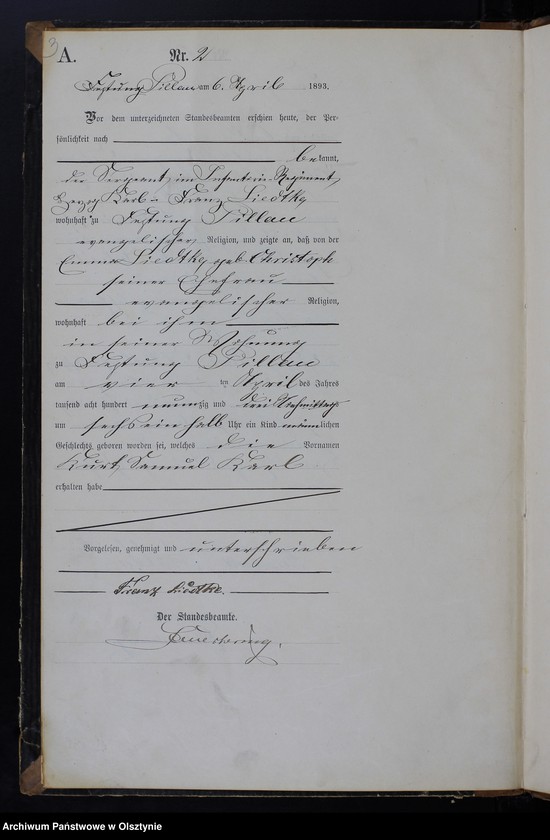 3
A.
Nr. 2
Festung Pillau am 6. April 1893.
Vor dem unterzeichneten Standesbeamten erschien heute, der Per-
sönlichkeit nach
bekannt,
der Sergeant im Infanterie-Regiment
Herzog Karl Franz Liedtke
wohnhaft zu Festung Pillau
evangelischer Religion, und zeigte an, daß von der
Emma Liedtke geb. Christoph
seiner Ehefrau
evangelischer Religion,
wohnhaft bei ihm
in seiner Wohnung
zu Festung Pillau
am vier ten April des Jahres
tausend acht hundert neunzig und drei Nachmittags
um sechs ein halb Uhr ein Kind männlichen
Geschlechts geboren worden sei, welches die Vornamen
Kurt Samuel Karl
erhalten habe
Vorgelesen, genehmigt und unterschrieben
Franz Liedtke.
Der Standesbeamte.
Archiwum Państwowe w Olsztynie